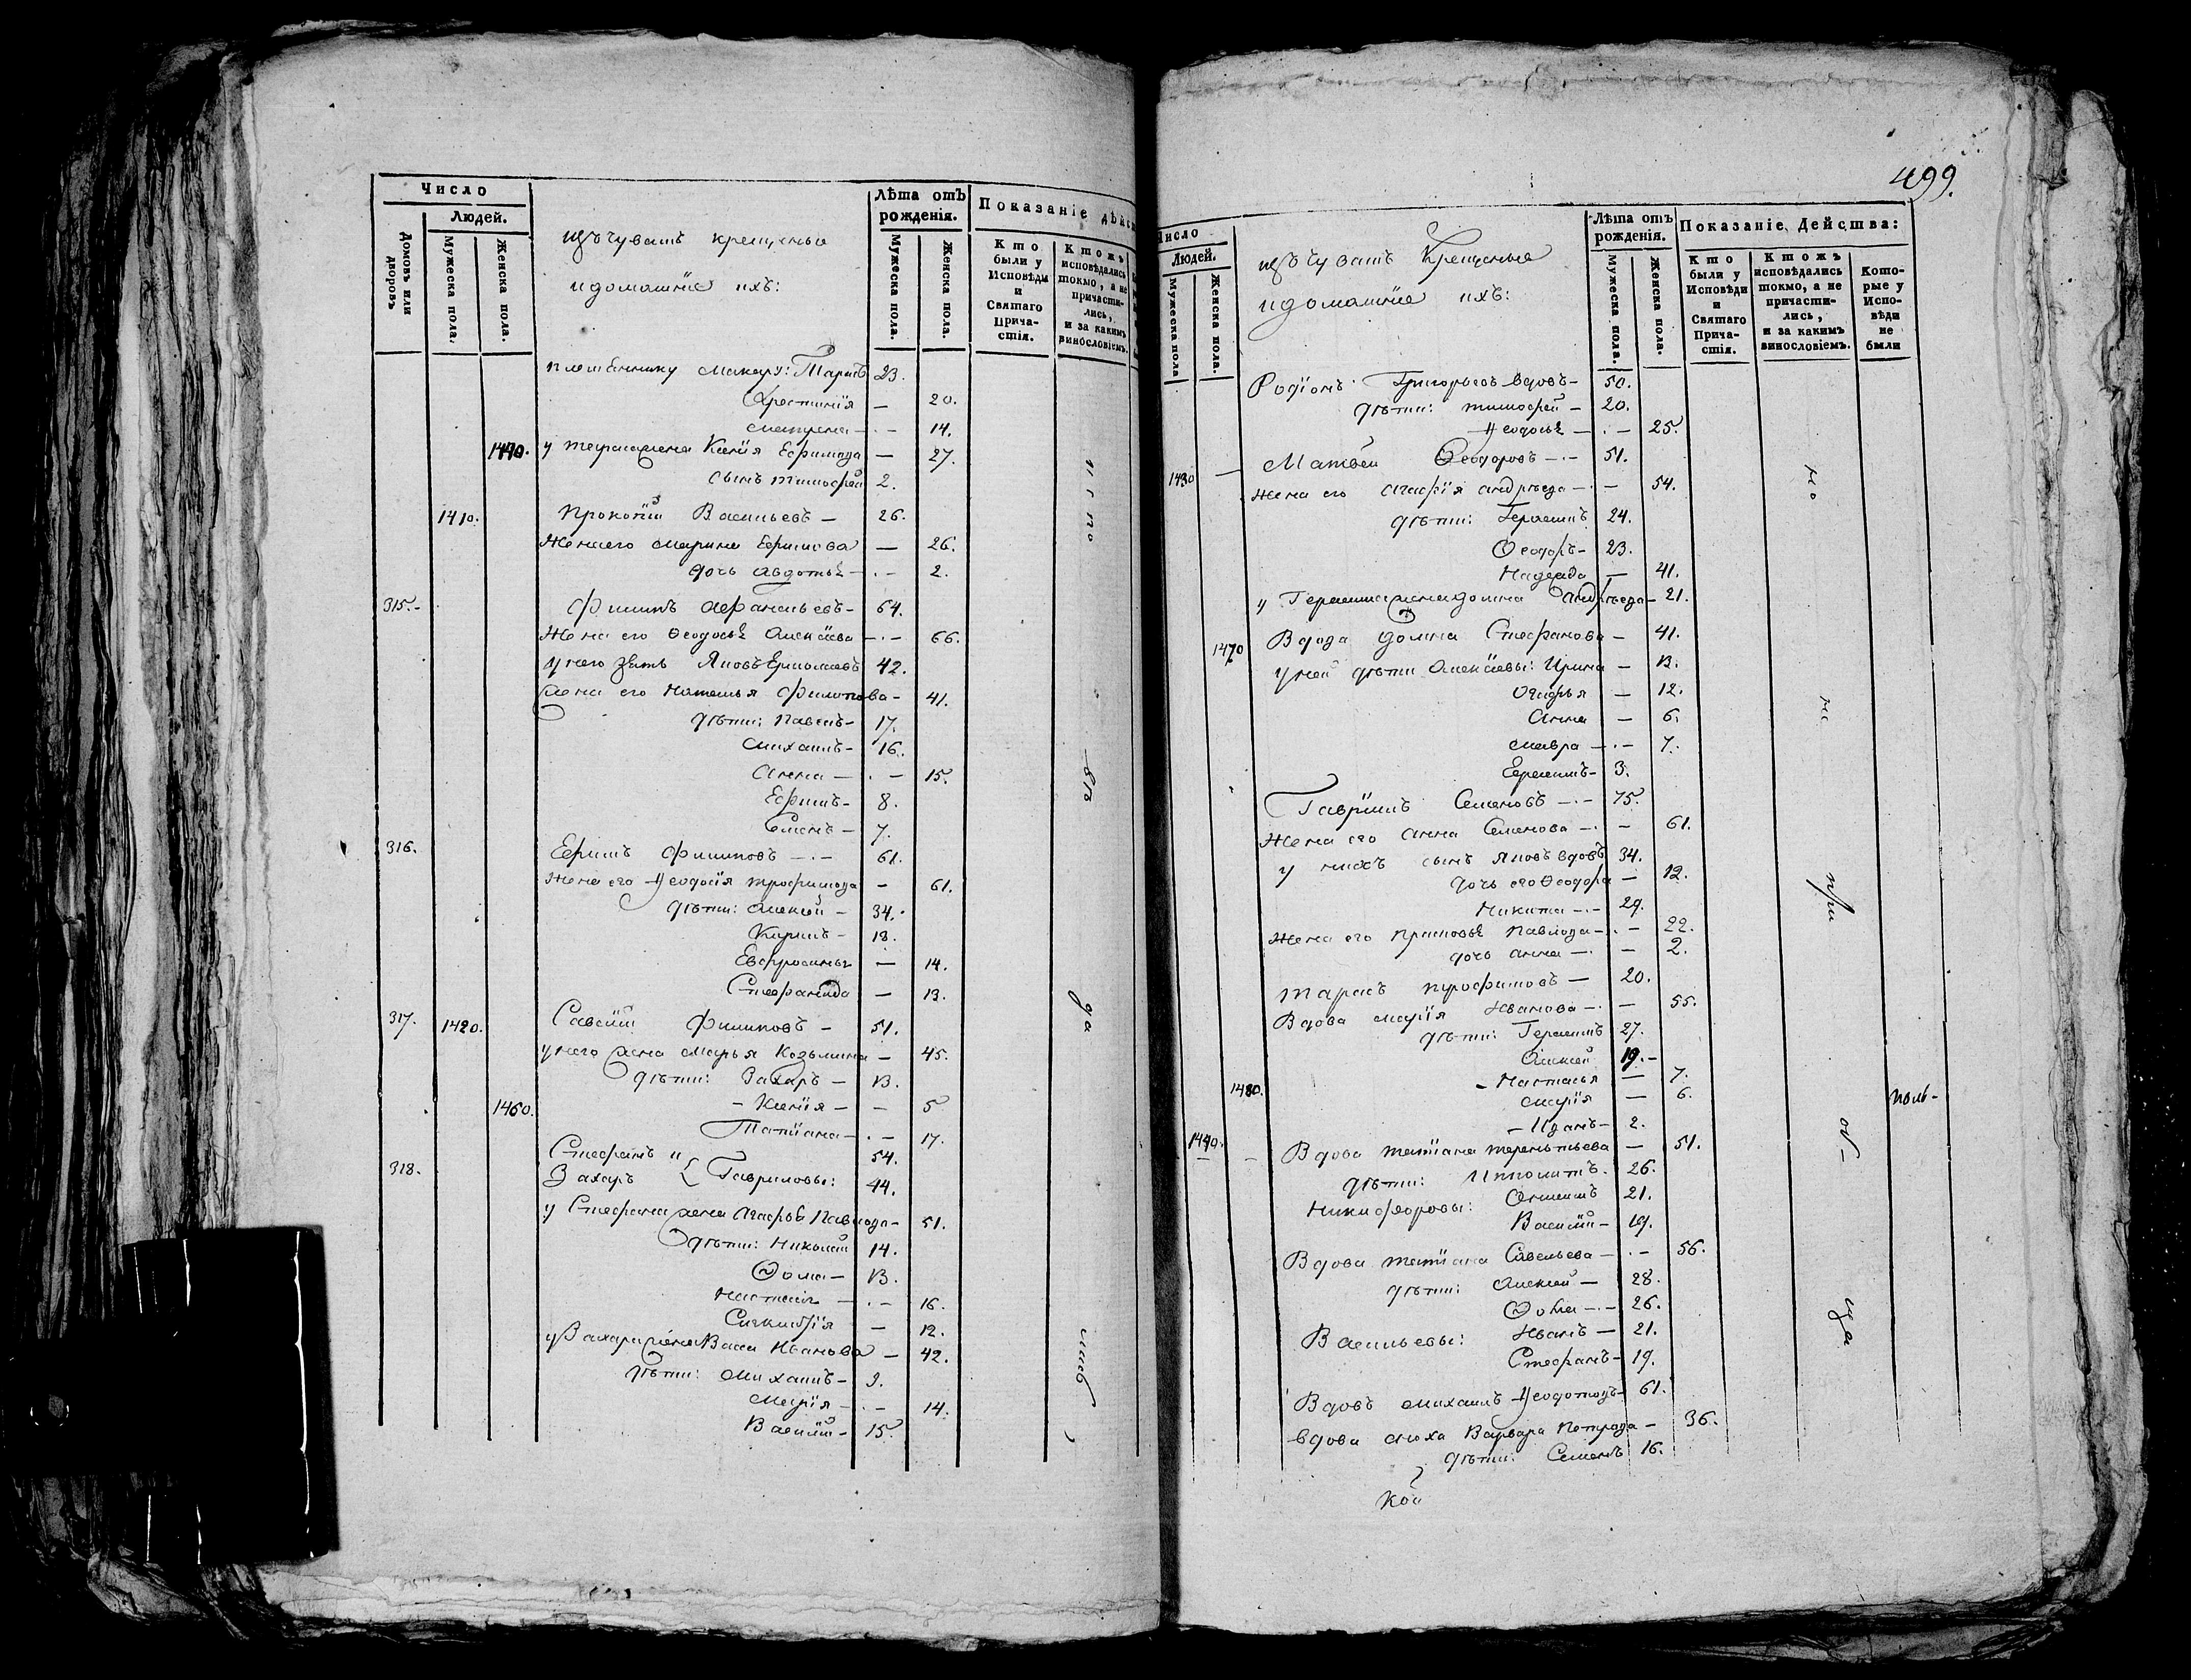 Число
Людей.
Домовъ или дворовъ
Мужеска пола.
Женска пола.
изъ чувашъ крещеные
и домашнïе ихъ:
Лѣта отъ рожденïя.
Мужеска пола.
Женска пола.
Показанïе дѣйс
Кто были у Исповѣди и Святаго Прича-стïя.
Ктожъ исповѣдались токмо, а не причасти-лись, и за какимъ винословïемъ.
племяннику Макару: Тарасъ 23.
Христинïя — 20.
Матрена — 14.
1440. у Тараса жена Ксенïя Ефимова — 27.
сынъ Тимофей 2.
1410. Прокопïй Васильевъ — 26.
Жена его Марина Ефимова — 26.
дочь Авдотья — 2.
315. Филипъ Афанасьевъ — 64.
Жена его Ѳеодосья Алексѣева — 66.
у него зять Яковъ Ермолаевъ 42.
жена его Наталья Филипова — 41.
дѣти: Павелъ — 17.
Михаилъ — 16.
Анна — 15.
Ефимъ — 8.
Семенъ — 7.
316. Ефимъ Филиповъ — 61.
Жена его Ѳеодосïя Трофимова — 61.
дѣти: Алексей — 34.
Кирилъ — 18.
Евфросинья — 14.
Стефанида — 13.
317. 1420. Савелïй Филиповъ — 51.
у него жена Марья Козьмина — 45.
дѣти: Захаръ — 13.
1460. Ксенïя — 5
Татïана — 17.
Стефанъ 54.
318. Захаръ { Гавриловы: 44.
у Стефана жена Агафья Павлова — 51.
дѣти: Николай 14.
Ѳома — 13.
Настасья — 16.
12.
у Захара жена Васса Иванова — 42.
дѣти: Михаилъ — 9.
Марïя — 14.
Василïй — 15.
499.
Число
Людей.
Мужеска пола
Женска пола.
изъ чувашъ Крещеные
и домашнïе ихъ:
Лѣта отъ рожденïя.
Мужеска пола.
Женска пола.
Показанïе Действа:
Кто были у Исповѣди и Святаго Прича-стïя.
Ктожъ исповѣдались токмо, а не причасти-лись, и за какимъ винословïемъ.
Кото-рые у Испо-вѣди не были
Родïонъ Григорьевъ вдовъ — 50.
дѣти: Тимофей — 20.
Ѳеодосья — 25.
1430 — Матвей Ѳеодоровъ — 51.
Жена его Агафïя Андрѣева — 54.
дѣти: Герасимъ 24.
Ѳеодоръ — 23.
Надежда — 41.
у Герасима жена Домна Андрѣева — 21.
1470 Вдова Домна Стефанова — 41.
у ней дѣти Алексѣевы: Ирина — 13.
12.
Анна — 6.
Мавра — 7.
3.
Гаврïилъ Семеновъ — 75.
Жена его Анна Семенова — 61.
у нихъ сынъ Яковъ вдовъ 34.
дочь его Ѳеодора — 12.
Никита — 29.
Жена его Прасковья Павлова — 22.
дочь Анна — 2.
Тарасъ Трофимовъ — 20.
Вдова Марïя Иванова — 55.
дѣти: Герасимъ 27.
Алексей 19. —
1480. — Настасья — 7.
Марïя — 6. поль-
— Иванъ — 2.
1440. Вдова Татïана Терентьева — 51.
дѣти: Ипполитъ. 26.
Никифоровы: 21.
Василïй — 19.
Вдова Татïана Савельева — 56.
дѣти: Алексей — 28.
Ѳома — 26.
Васильевы: Иванъ — 21.
Стефанъ — 19.
Вдовъ Михаилъ Ѳеодотовъ — 61.
вдова сноха Варвара Петрова — 36.
дѣти: Семенъ 16.
Кой